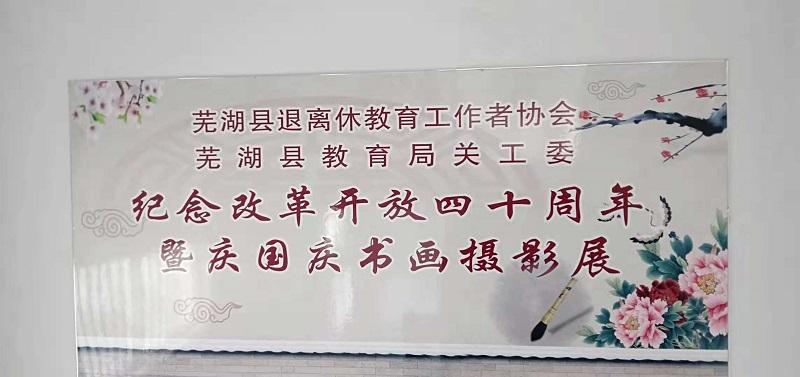 芜湖县退离休教育工作者协会
芜湖县教育局关工委
纪念改革开放四十周年
暨庆国庆书画摄影展